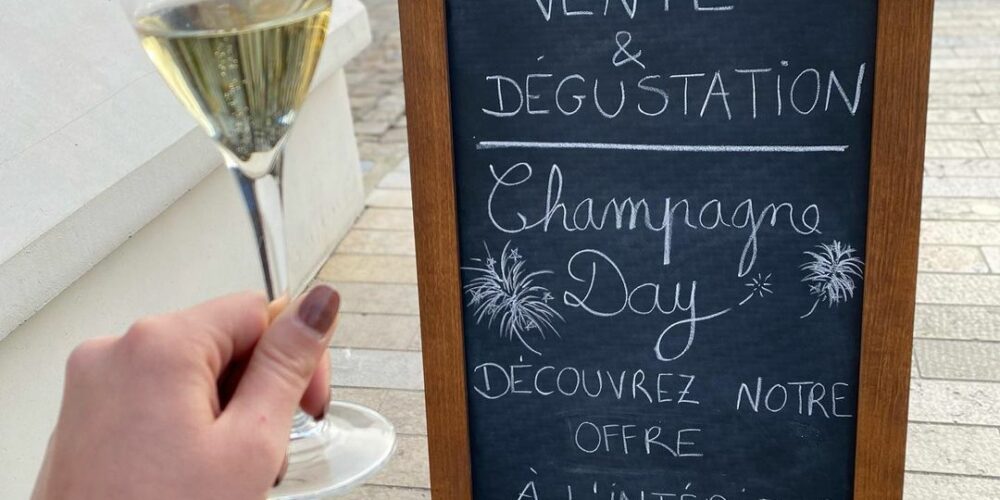 VENTE
&
DÉGUSTATION
Champagne
Day
DÉCOUVREZ NOTRE
OFFRE
À L'INTÉRI